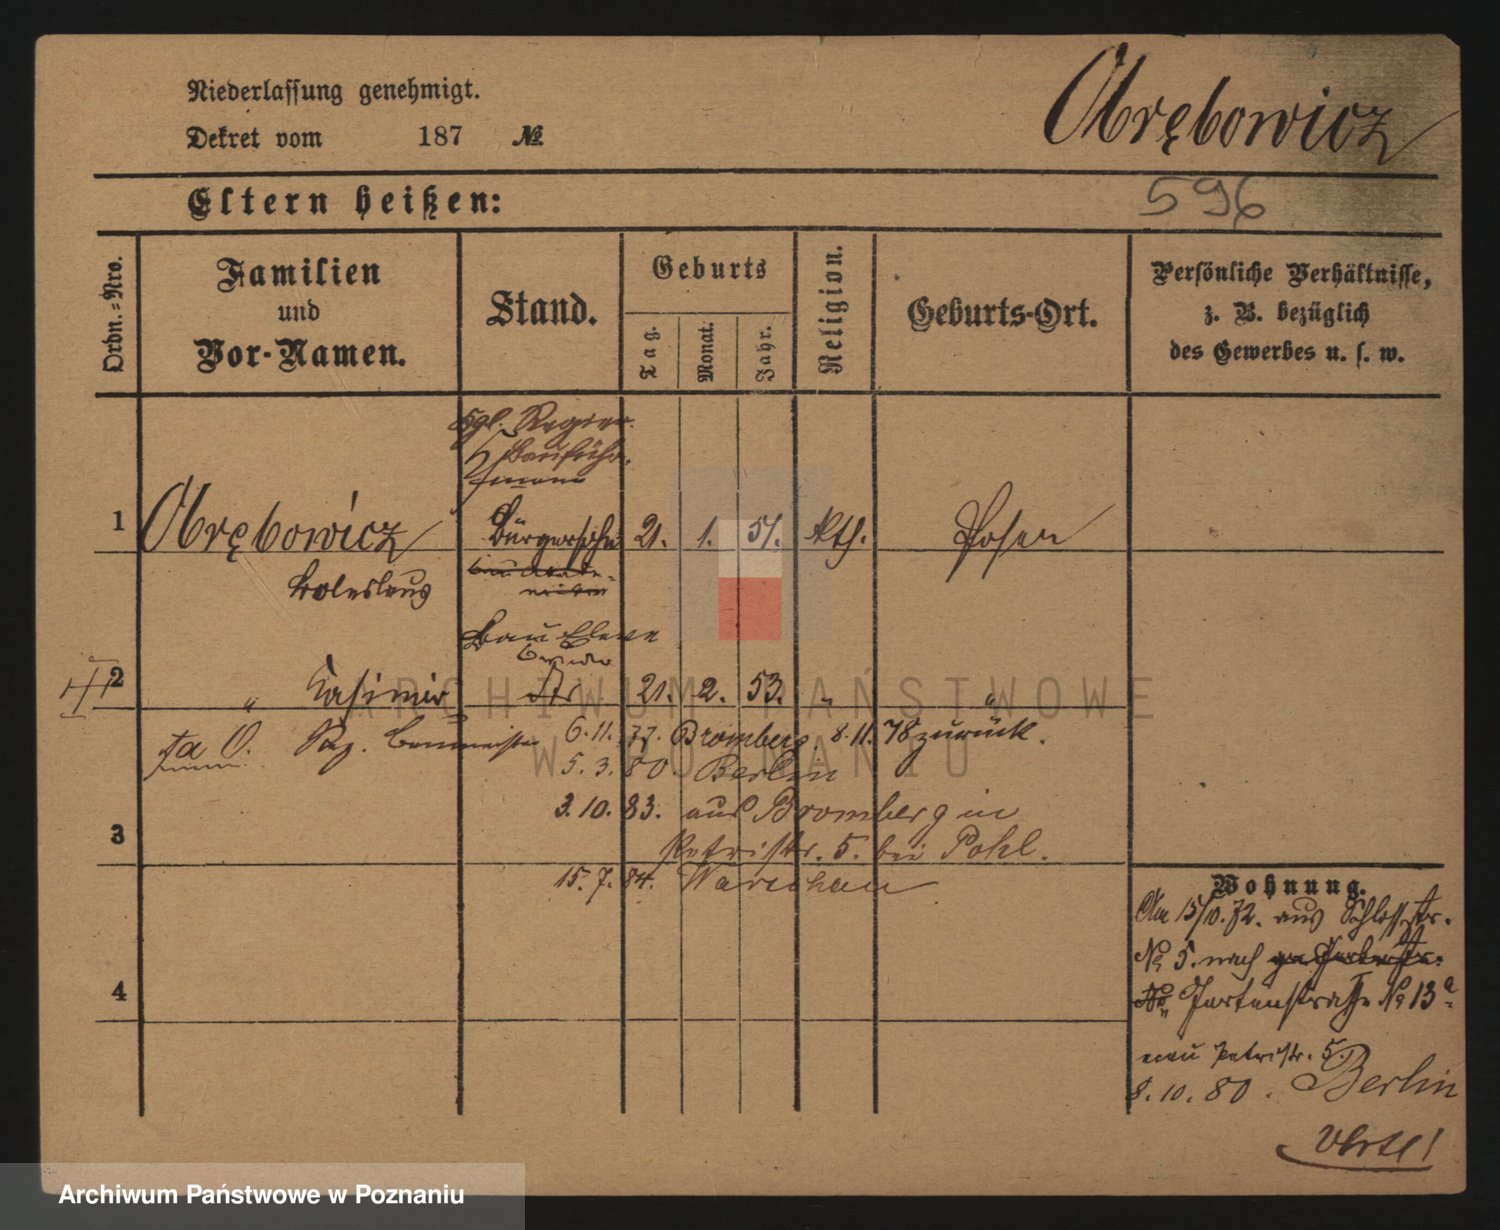 Niederlassung genehmigt.
Dekret vom 187 №
Obrębowicz
Eltern heißen:
596
Ordn.-Nro.
Familien
und
Vor-Namen.
Stand.
Geburts
Tag.
Monat.
Jahr.
Religion.
Geburts-Ort.
Persönliche Verhältnisse,
z. B. bezüglich
des Gewerbes u. s. w.
Kgl. Regier.
Bauführ.
1 Obrębowicz Bürgersohn 21. 1. 51. Kth. Posen
Boleslaus
Bau Eleve
2 " Kasimir 21. 2. 53. " "
6.11.77. Bromberg. 8.11.78 zurück.
5.3.80. Berlin
3
3.10.83. aus Bromberg in
Petristr. 5. bei Pohl.
15.7.84. Warschau
4
Wohnung.
Am 15/10.72. aus Schlossstr.
№ 5. nach
Gartenstraße № 13a
neu Petristr. 5.
8.10.80. Berlin
ARCHIWUM PAŃSTWOWE
W POZNANIU
Archiwum Państwowe w Poznaniu